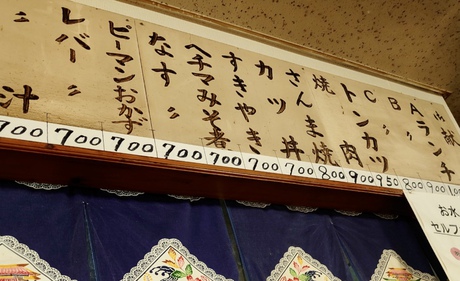 献
Aランチ
B
C
トンカツ
焼肉
さんま焼
カツ丼
すきやき
ヘチマみそ煮
なす 〃
ピーマンおかず
レバー 〃
〃 汁
700 700 700 700 700 700 700 800 900 950 800 900
お水
セルフ